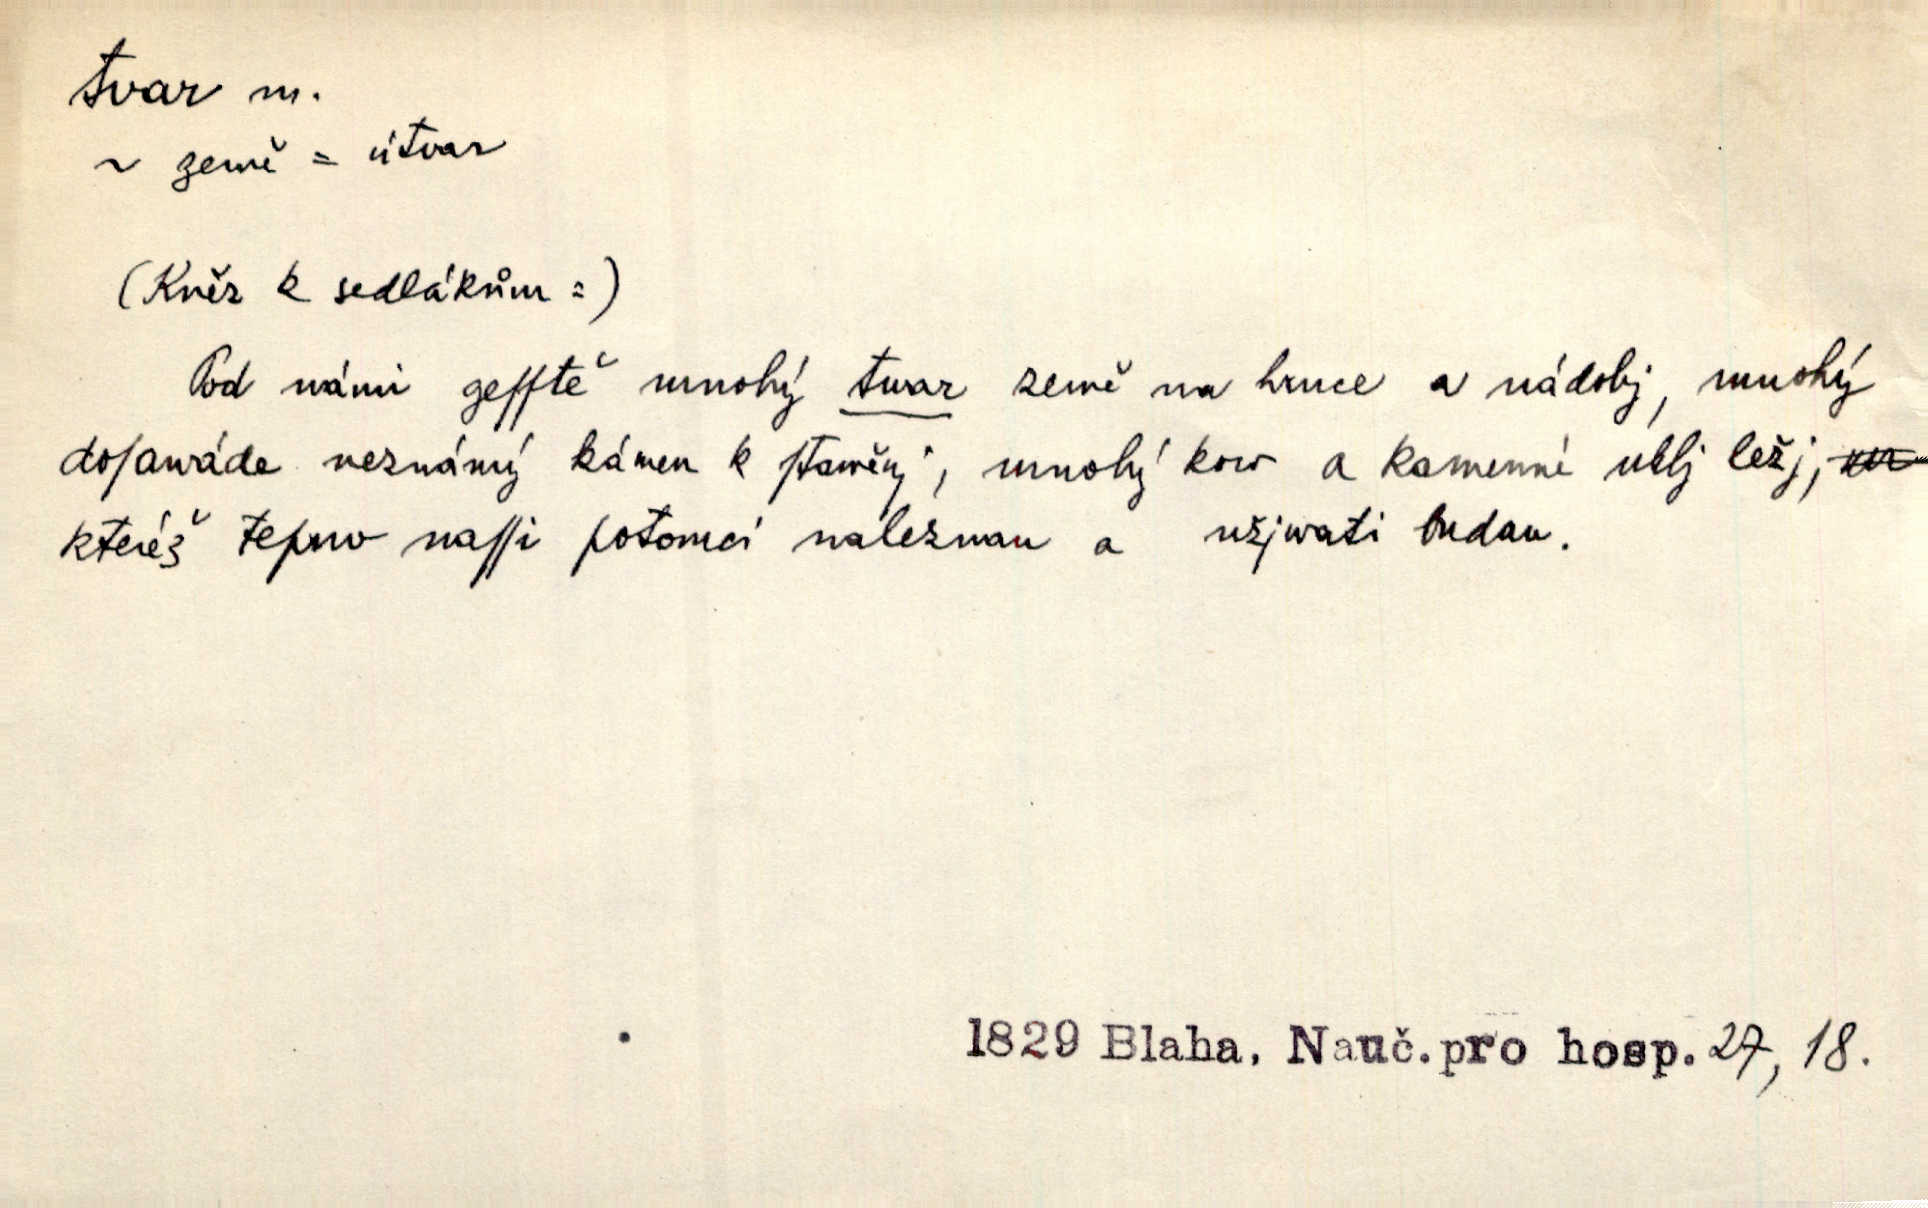 tvar m.
~ země = útvar
(Kněz k sedlákům =)
Pod námi geſſtě mnohý twar země na hrnce a nádobj, mnohý
doſawáde neznámý kámen k ſtawěnj, mnohý kow a kamenné uhlj ležj,
kteréž teprw naſſi potomci naleznau a užjwati budau.
1829 Blaha, Nauč.pro hosp. 27, 18.